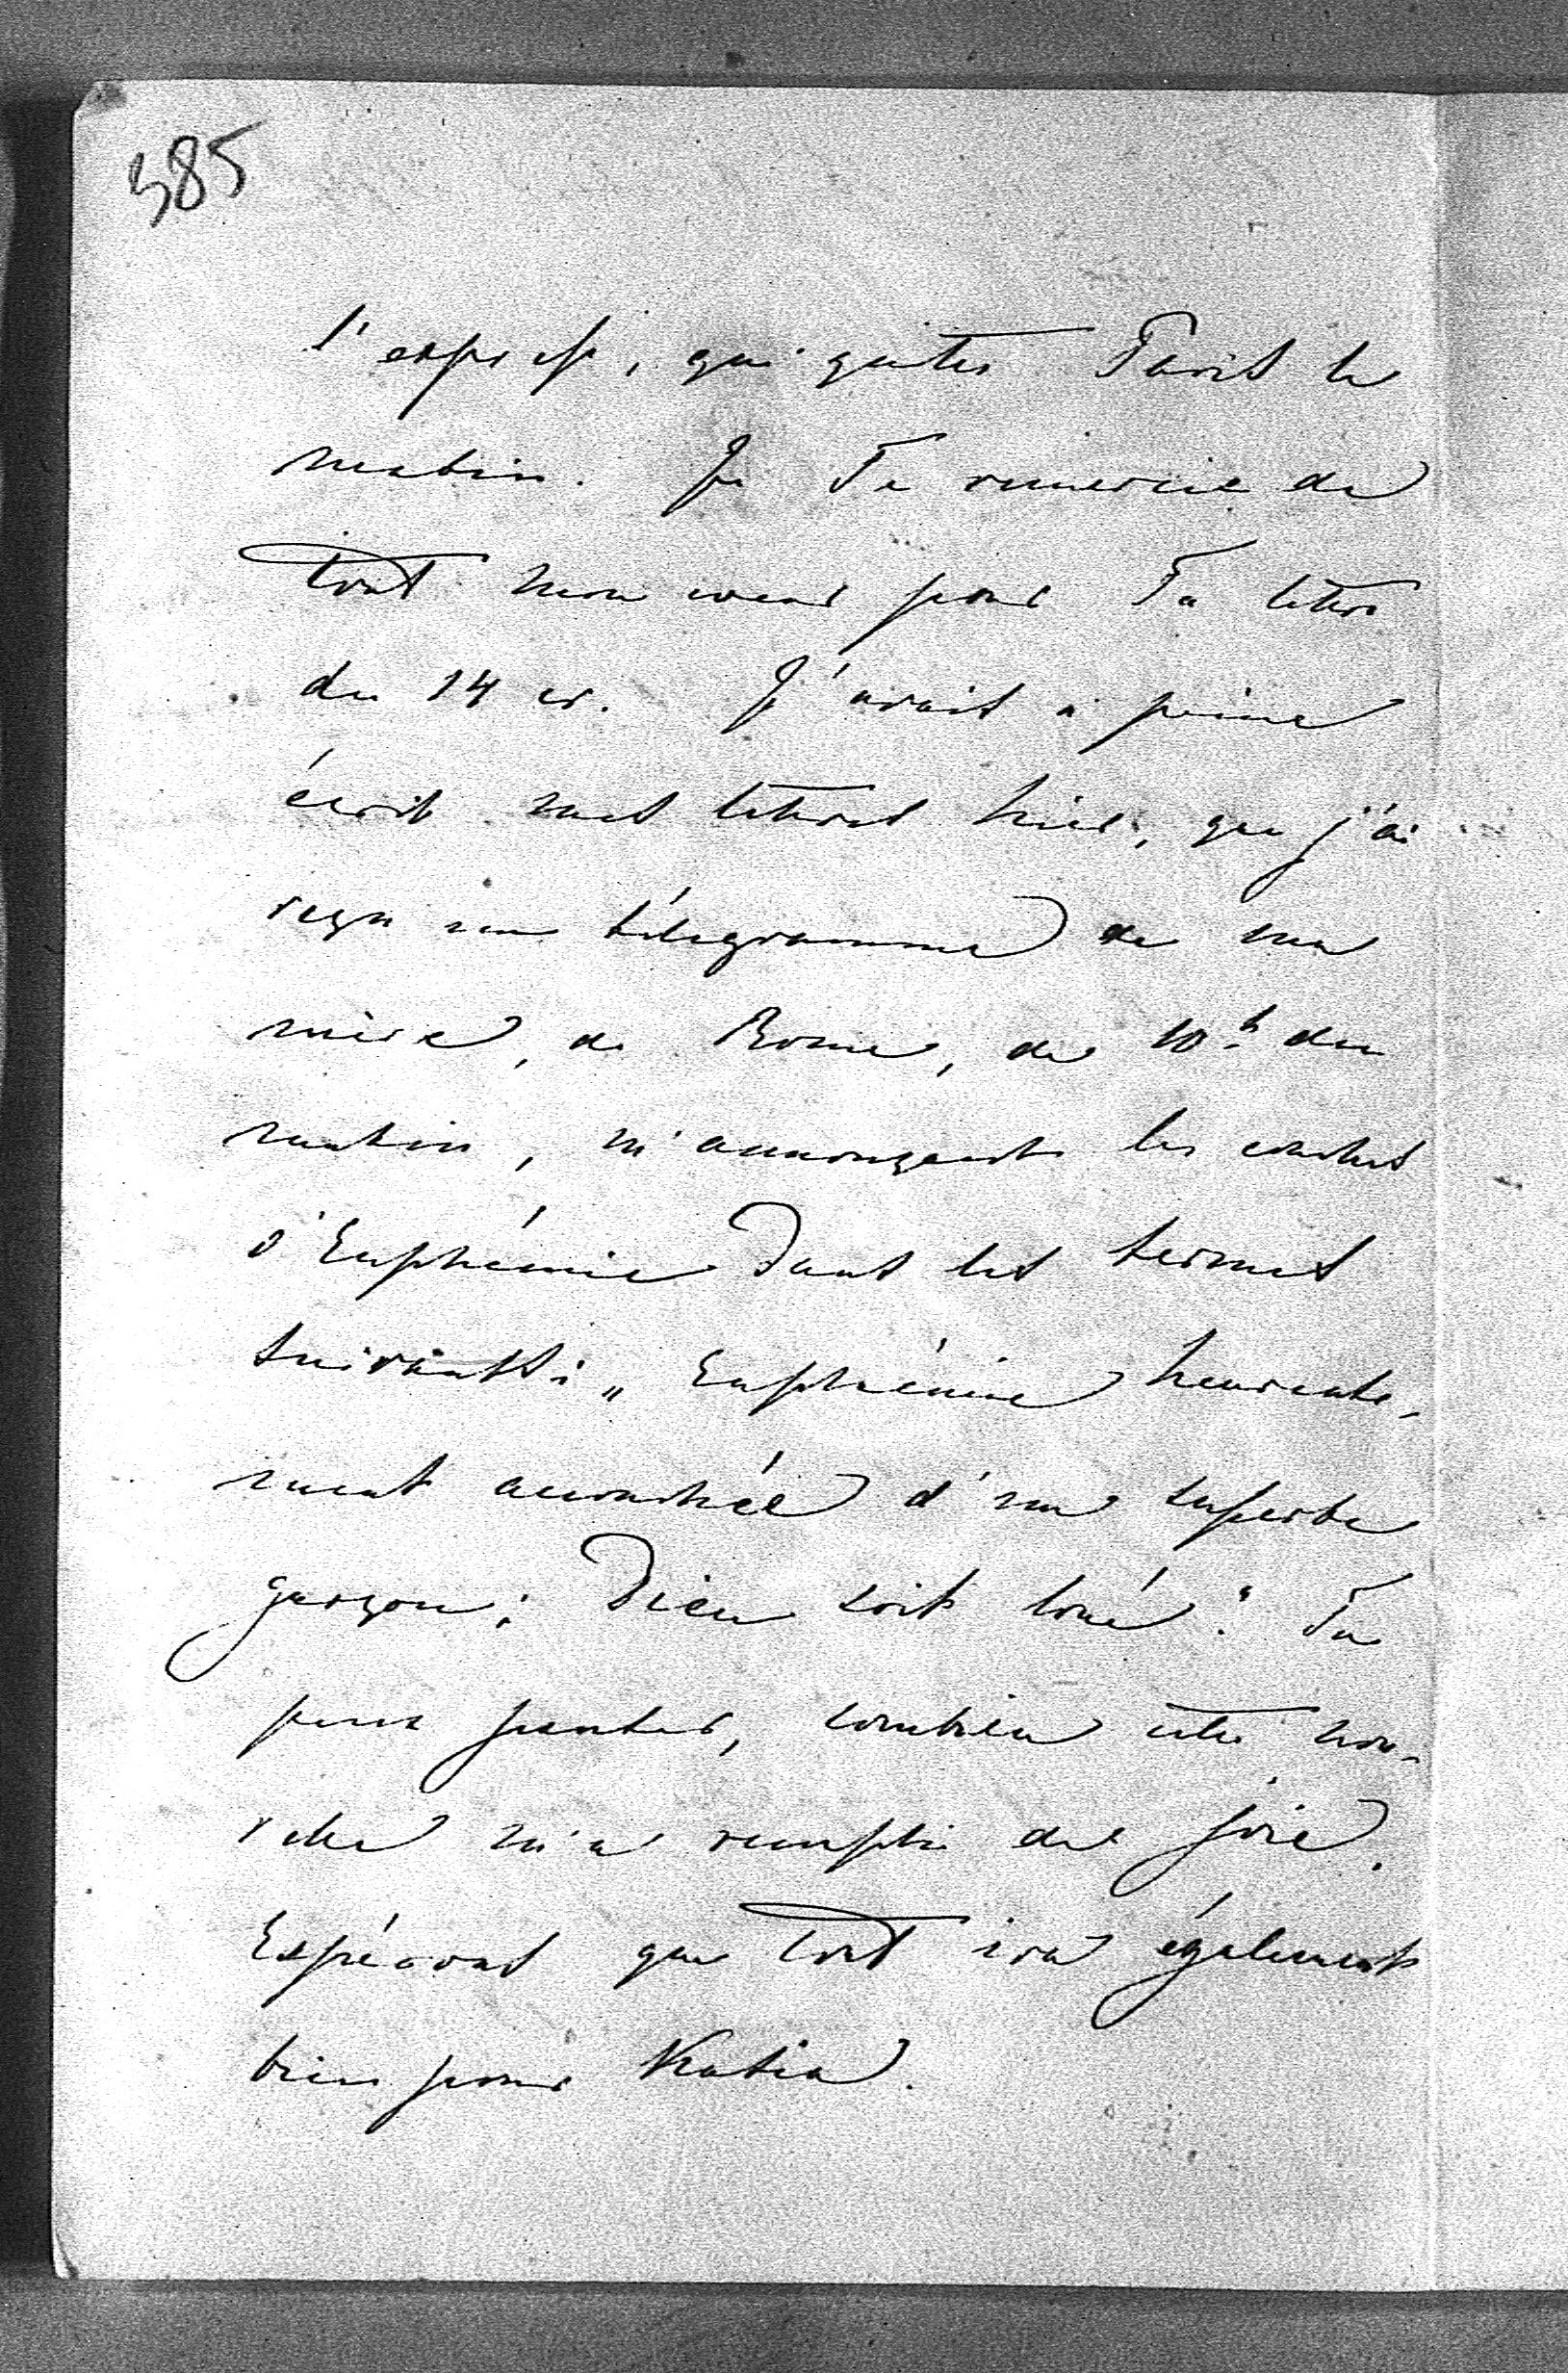 385
l'express, qui quitte Paris le
matin. Je Te remercie de
tout mon coeur pour Ta lettre
du 14 cr. J'avais à peine
écrit mes lettres hier, que j'ai
reçu un télégramme de ma
mère, de Rome, de 10h du
matin, m'annonçant les couches
d'Euphémie dans les termes
suivants: „Euphémie heureuse-
ment accouchée d'un superbe
garçon; Dieu soit loué." Tu
peux penser, combien cette nou-
velle m'a rempli de joie.
Espérons que tout ira également
bien pour Katia.